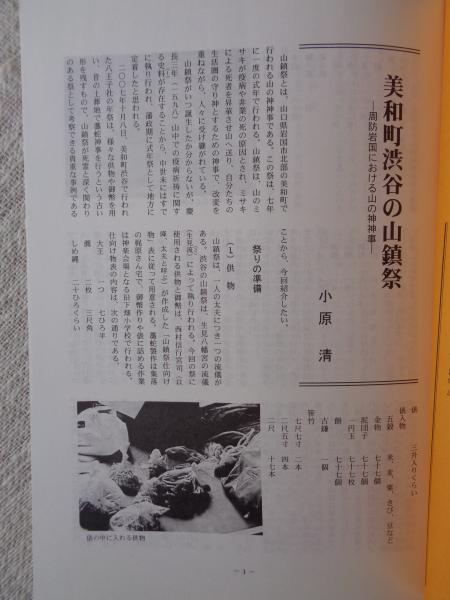 美和町渋谷の山鎮祭
―周防岩国における山の神神事―
小原 清
山鎮祭とは、山口県岩国市北部の美和町で
行われる山の神神事である。この祭は、七年
に一度の式年で行われる。山鎮祭は、山のミ
サキが疫病や非業の死の原因とされ、ミサキ
による死者を昇華させ山へ送り、自分たちの
生活圏の守り神とするための神事で、改変を
重ねながら、人々に受け継がれている。
山鎮祭がいつ誕生したか分からないが、慶
長三年(一五九八)山中での疫病祈祷に関す
る史料が存在することから、中世末にはすで
に執り行われ、藩政期に式年祭として地方に
定着したと思われる。
二〇〇七年十月八日、美和町渋谷で行われ
た八王子社の年祭は、様々な供物や御幣を用
い、昔の土葬地で藁蛇神事を行うという古い
形を残すもので、山鎮祭が死霊と深く関わり
のある祭として考察できる貴重な事例である
ことから、今回紹介したい。
祭りの準備
(1)供 物
山鎮祭は、一人の太夫につき一つの流儀が
ある。渋谷の山鎮祭は、生見八幡宮の流儀
(生見流)によって執り行われる。今回の祭に
使用される供物と御幣は、西村信行宮司(以
降、太夫と呼ぶ)が作成した「山鎮祭仕向け
物」表に従って用意される。藁蛇製作は集落
の梶原さん宅で、御幣作りや俵に詰める作業
は神楽会場となる旧下畑小学校で行われる。
仕向け物表の内容は、次の通りである。
大王 一つ 七ひろ半
薦 二枚 三尺角
しめ縄 二十ひろくらい
俵 三升入りくらい
俵入物
五穀 米、麦、粟、きび、豆など
金物 七十七個
泥団子 七十七個
一円玉 七十七枚
餅 七十七個
古鎌 一個
笹竹
七尺七寸 二本
二尺五寸 四本
二尺 十七本
俵の中に入れる供物
－1－